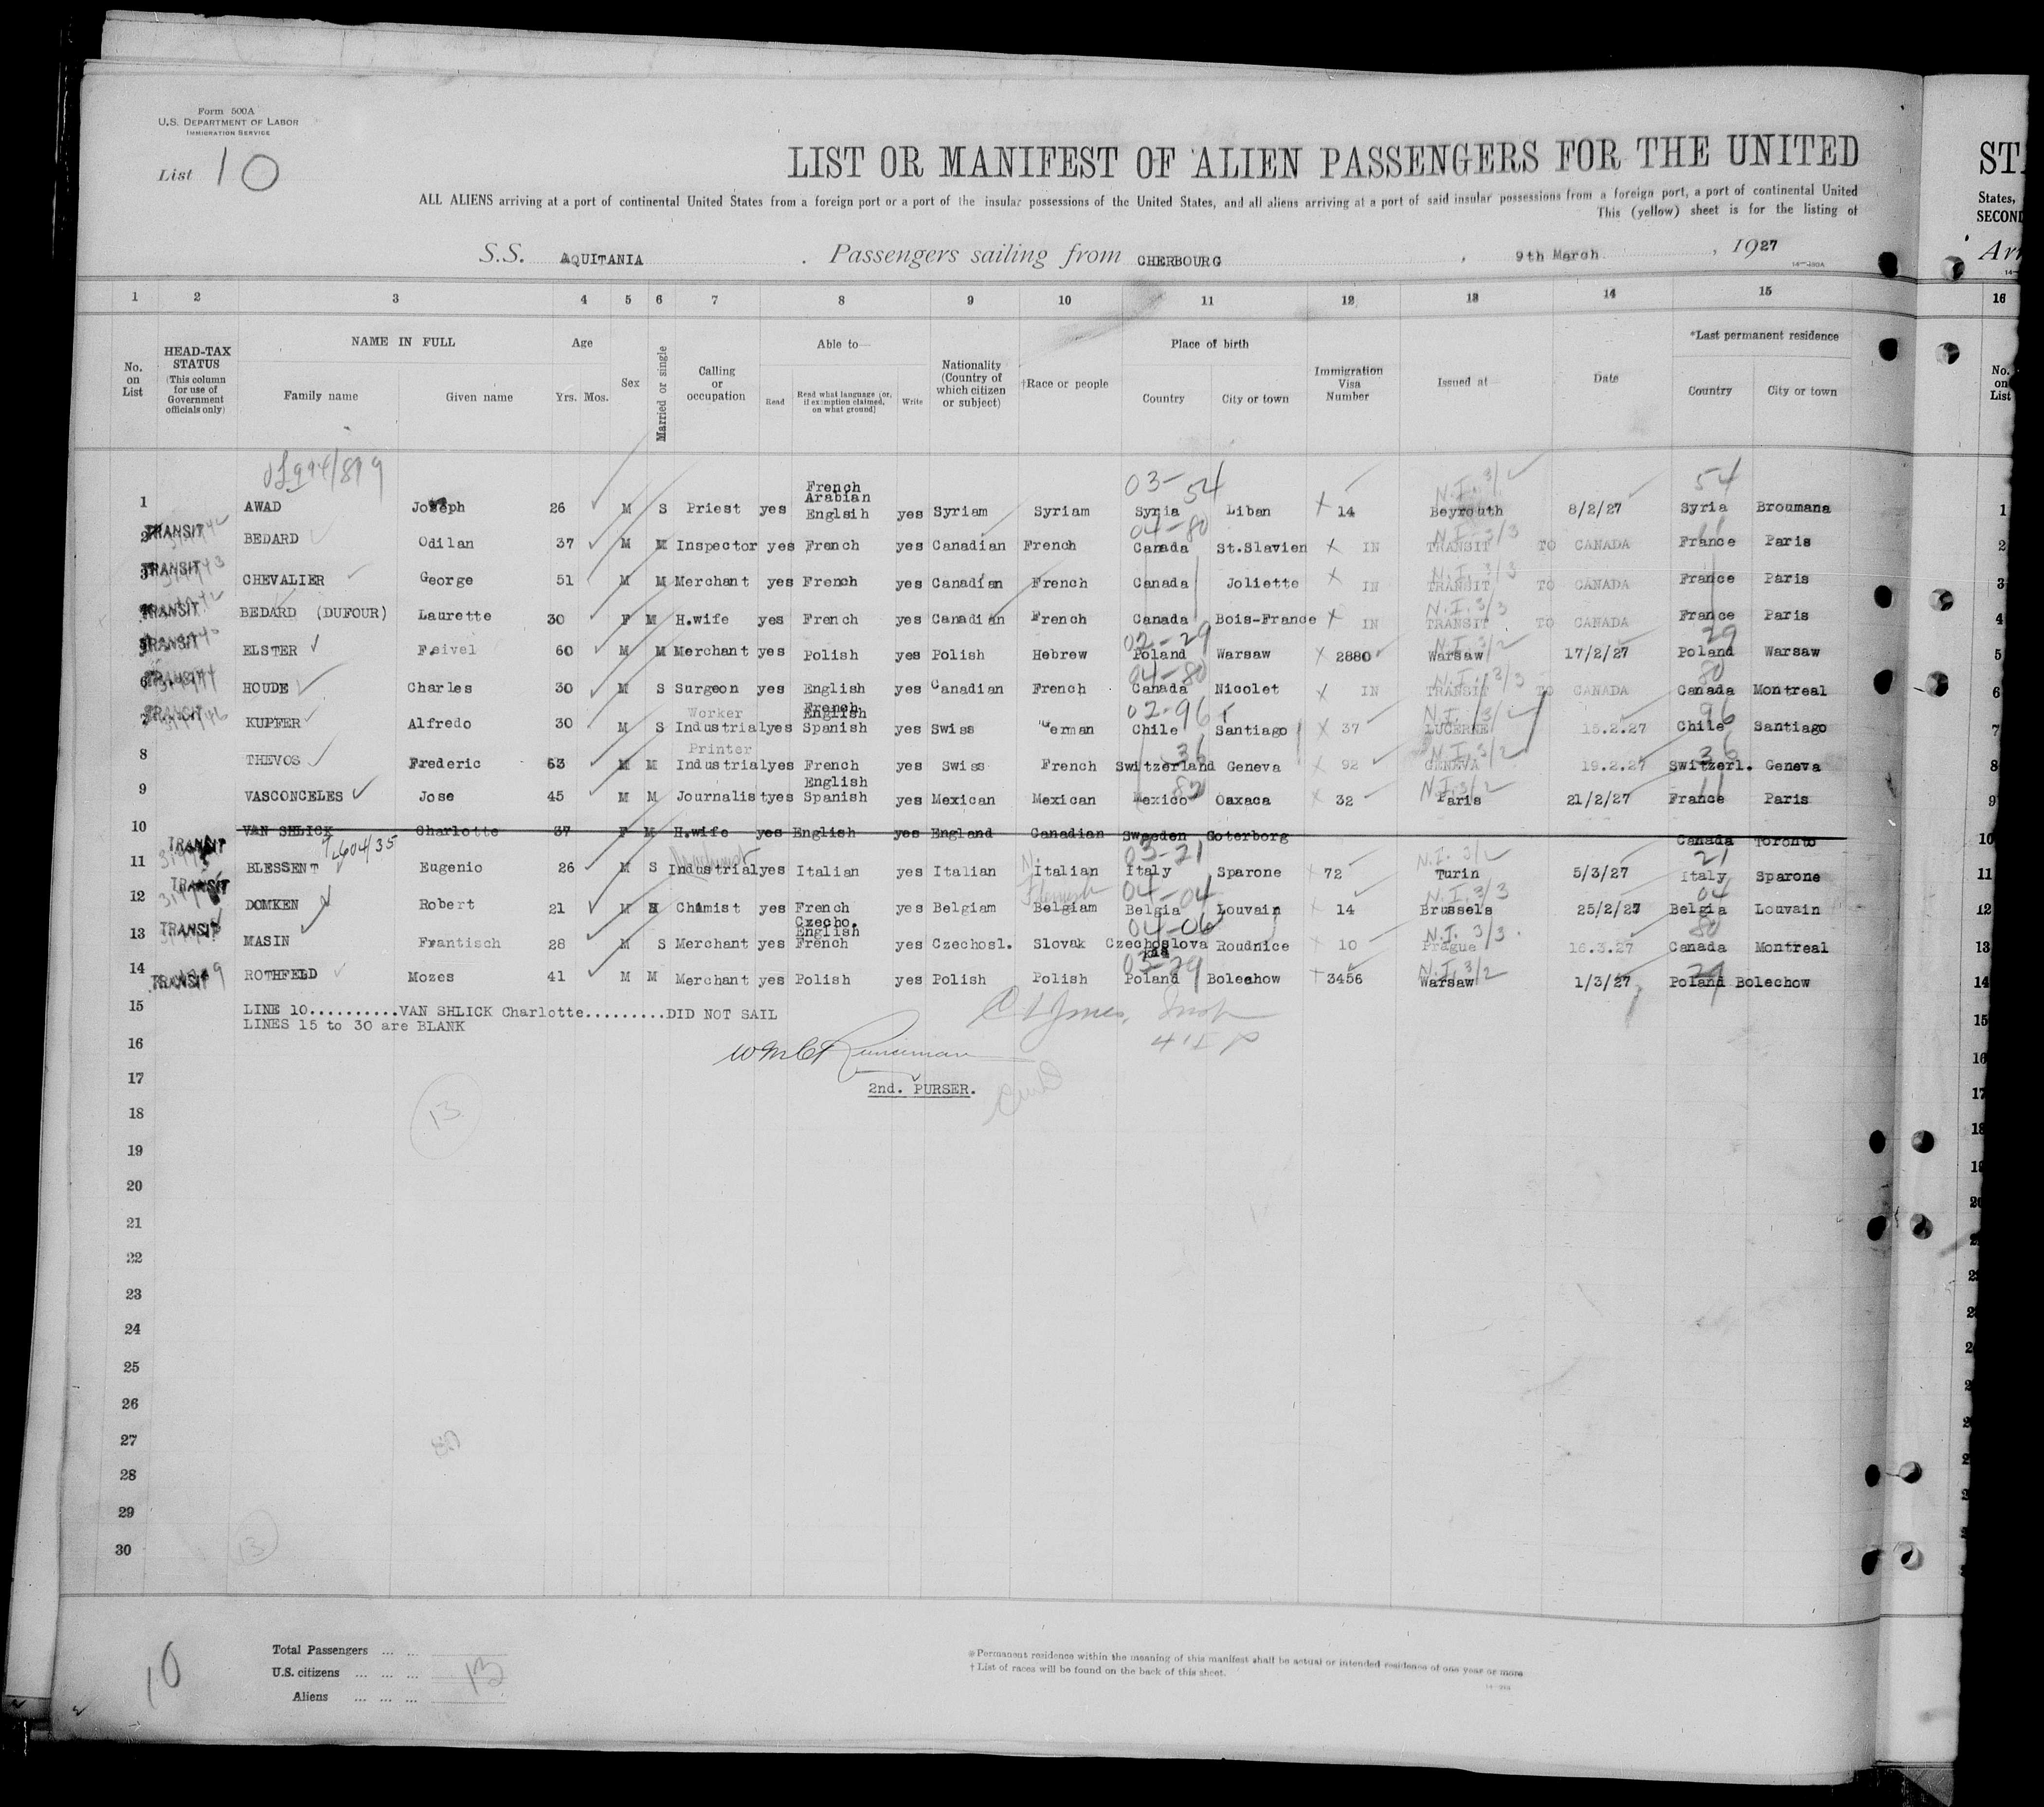 Form 500A
U.S. DEPARTMENT OF LABOR
IMMIGRATION SERVICE
List 10
LIST OR MANIFEST OF ALIEN PASSENGERS FOR THE UNITED
ALL ALIENS arriving at a port of continental United States from a foreign port or a port of the insular possessions of the United States, and all aliens arriving at a port of said insular possessions from a foreign port, a port of continental United
This (yellow) sheet is for the listing of
S.S. AQUITANIA . Passengers sailing from CHERBOURG , 9th March , 1927
1 2 3 4 5 6 7 8 9 10 11 12 13 14 15 16
No. on List
HEAD-TAX STATUS (This column for use of Government officials only)
NAME IN FULL
Family name Given name
Age
Yrs. Mos.
Sex
Married or single
Calling or occupation
Able to—
Read
Read what language (or, if exemption claimed, on what ground)
Write
Nationality (Country of which citizen or subject)
†Race or people
Place of birth
Country City or town
Immigration Visa Number
Issued at—
Date
*Last permanent residence
Country City or town
No. on List
03-54 N.I. 3/2 54
1 AWAD Joseph 26 M S Priest yes French Arabian Englsih yes Syriam Syriam Syria Liban 14 Beyrouth 8/2/27 Syria Broumana 1
04-80 N.I. 3/3
2 TRANSIT BEDARD Odilan 37 M M Inspector yes French yes Canadian French Canada St.Slavien IN TRANSIT TO CANADA France Paris 2
N.I. 3/3
3 TRANSIT CHEVALIER George 51 M M Merchant yes French yes Canadian French Canada Joliette IN TRANSIT TO CANADA France Paris 3
N.I. 3/3
4 TRANSIT BEDARD (DUFOUR) Laurette 30 F M H.wife yes French yes Canadian French Canada Bois-France IN TRANSIT TO CANADA France Paris 4
02-29 N.I. 3/2 29
5 TRANSIT ELSTER Feivel 60 M M Merchant yes Polish yes Polish Hebrew Poland Warsaw 2880 Warsaw 17/2/27 Poland Warsaw 5
04-80 N.I. 3/3 80
6 TRANSIT HOUDE Charles 30 M S Surgeon yes English French yes Canadian French Canada Nicolet IN TRANSIT TO CANADA Canada Montreal 6
02-96 N.I. 3/2 96
7 TRANSIT KUPFER Alfredo 30 M S Worker Industrial yes English Spanish yes Swiss German Chile Santiago 37 LUCERNE 15.2.27 Chile Santiago 7
36 N.I. 3/2 36
8 THEVOS Frederic 63 M M Printer Industrial yes French yes Swiss French Switzerland Geneva 92 GENEVA 19.2.27 Switzerl. Geneva 8
82 N.I. 3/2 11
9 VASCONCELES Jose 45 M M Journalist yes English Spanish yes Mexican Mexican Mexico Oaxaca 32 Paris 21/2/27 France Paris 9
10 VAN SHLICK Charlotte 37 F M H.wife yes English yes England Canadian Sweeden Goterborg Canada Toronto 10
03-21 N.I. 3/2 21
11 TRANSIT BLESSENT Eugenio 26 M S Industrial yes Italian yes Italian N. Italian Italy Sparone 72 Turin 5/3/27 Italy Sparone 11
Flemish 04-04 N.I. 3/3 04
12 TRANSIT DOMKEN Robert 21 M Chimist yes French yes Belgiam Belgiam Belgia Louvain 14 Brussels 25/2/27 Belgia Louvain 12
04-06 N.I. 3/3 80
13 TRANSIT MASIN Frantisch 28 M S Merchant yes Czecho. English French yes Czechosl. Slovak Czechoslova kia Roudnice 10 Prague 16.3.27 Canada Montreal 13
03-29 N.I. 3/2 29
14 TRANSIT ROTHFELD Mozes 41 M M Merchant yes Polish yes Polish Polish Poland Bolechow 3456 Warsaw 1/3/27 Poland Bolechow 14
15 LINE 10..........VAN SHLICK Charlotte.........DID NOT SAIL 15
LINES 15 to 30 are BLANK
16
2nd. PURSER.
17
13
18
19
20
21
22
23
24
25
26
27
28
29
13
30
10
Total Passengers ... ...
U.S. citizens ... ... ... 13
Aliens ... ... ...
*Permanent residence within the meaning of this manifest shall be actual or intended residence of one year or more
†List of races will be found on the back of this sheet.